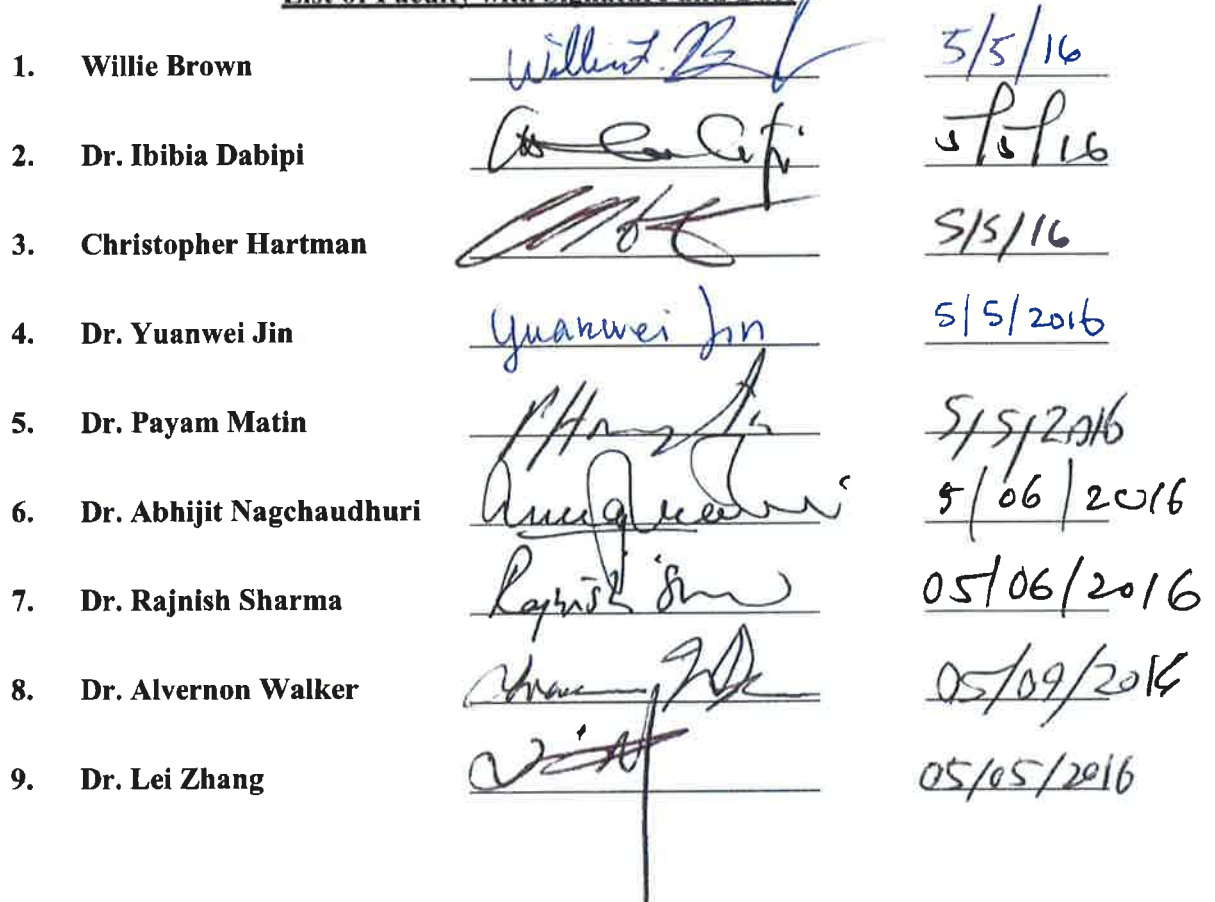 List of Faculty with Signature and Date
1. Willie Brown Willie F. B 5/5/16
2. Dr. Ibibia Dabipi 5/5/16
3. Christopher Hartman 5/5/16
4. Dr. Yuanwei Jin Yuanwei Jin 5/5/2016
5. Dr. Payam Matin 5/5/2016
6. Dr. Abhijit Nagchaudhuri 5/06/2016
7. Dr. Rajnish Sharma Rajnish 05/06/2016
8. Dr. Alvernon Walker 05/09/2016
9. Dr. Lei Zhang 05/05/2016